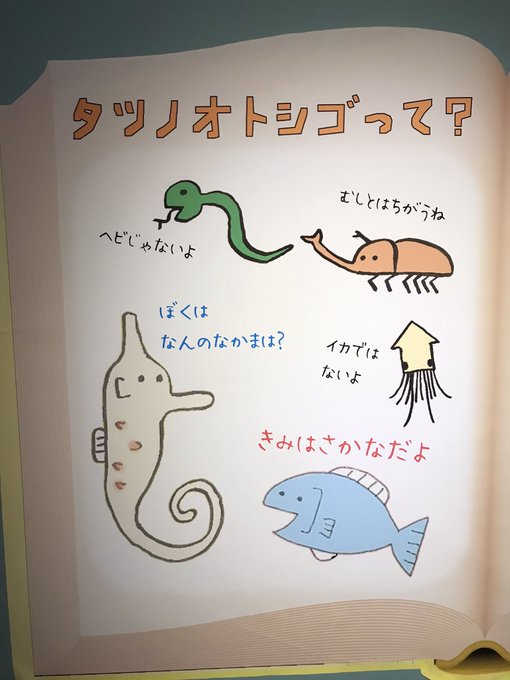 タツノオトシゴって？
ヘビじゃないよ
むしとはちがうね
ぼくは
なんのなかまは？
イカでは
ないよ
きみはさかなだよ